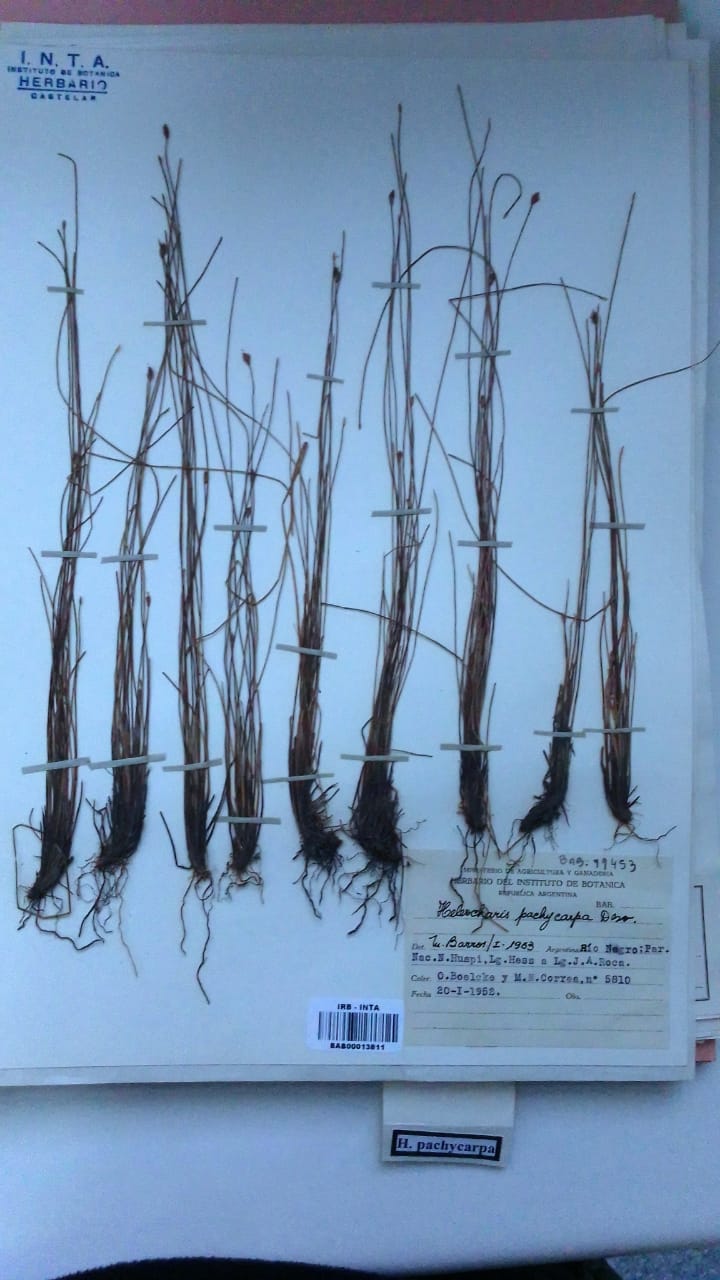 I. N. T. A.
INSTITUTO DE BOTANICA
HERBARIO
CASTELAR
MINISTERIO DE AGRICULTURA Y GANADERIA
HERBARIO DEL INSTITUTO DE BOTANICA
REPUBLICA ARGENTINA
BAB.
Heleocharis pachycarpa Desv.
Det. M. Barros/I-1953 Argentina: Río Negro; Par.
Nac. N. Huapi, Lg. Hess a Lg. J.A. Roca.
Colec. O. Boelcke y M.N. Correa, n° 5810
Fecha 20-I-1952. Obs.
IRB - INTA
BAB00013811
H. pachycarpa